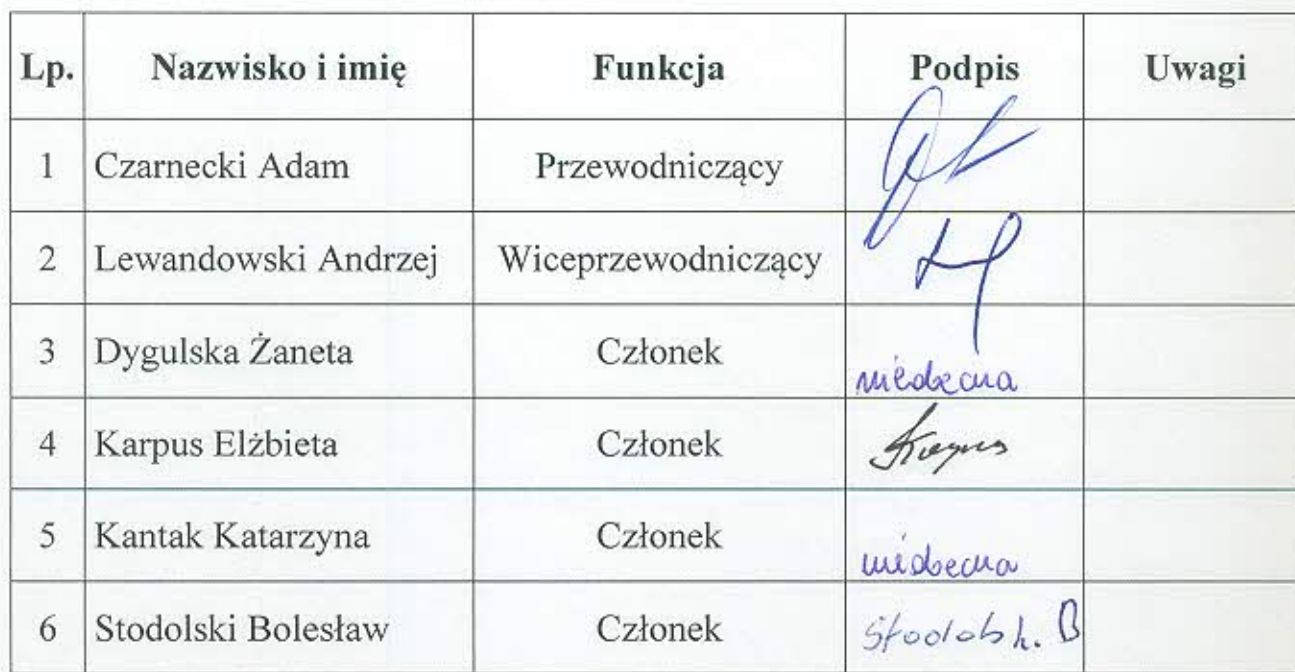 Lp. Nazwisko i imię Funkcja Podpis Uwagi
1 Czarnecki Adam Przewodniczący
2 Lewandowski Andrzej Wiceprzewodniczący
3 Dygulska Żaneta Członek nieobecna
4 Karpus Elżbieta Członek Karpus
5 Kantak Katarzyna Członek nieobecna
6 Stodolski Bolesław Członek Stodolsk. B